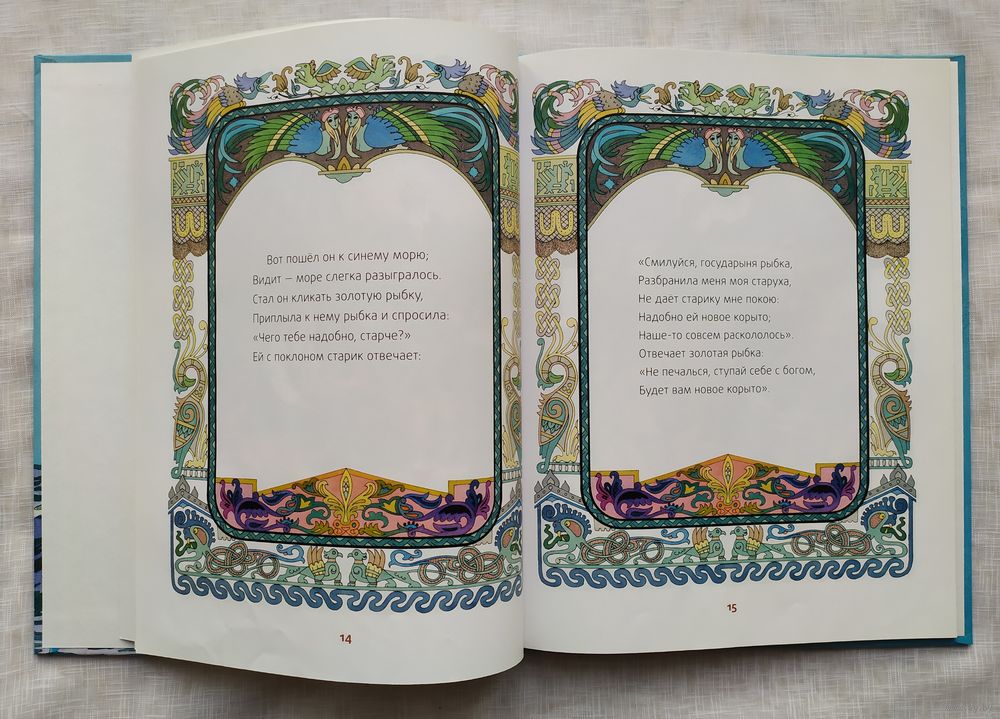 Вот пошёл он к синему морю;
Видит – море слегка разыгралось.
Стал он кликать золотую рыбку,
Приплыла к нему рыбка и спросила:
«Чего тебе надобно, старче?»
Ей с поклоном старик отвечает:
14
«Смилуйся, государыня рыбка,
Разбранила меня моя старуха,
Не даёт старику мне покою:
Надобно ей новое корыто;
Наше-то совсем раскололось».
Отвечает золотая рыбка:
«Не печалься, ступай себе с богом,
Будет вам новое корыто».
15